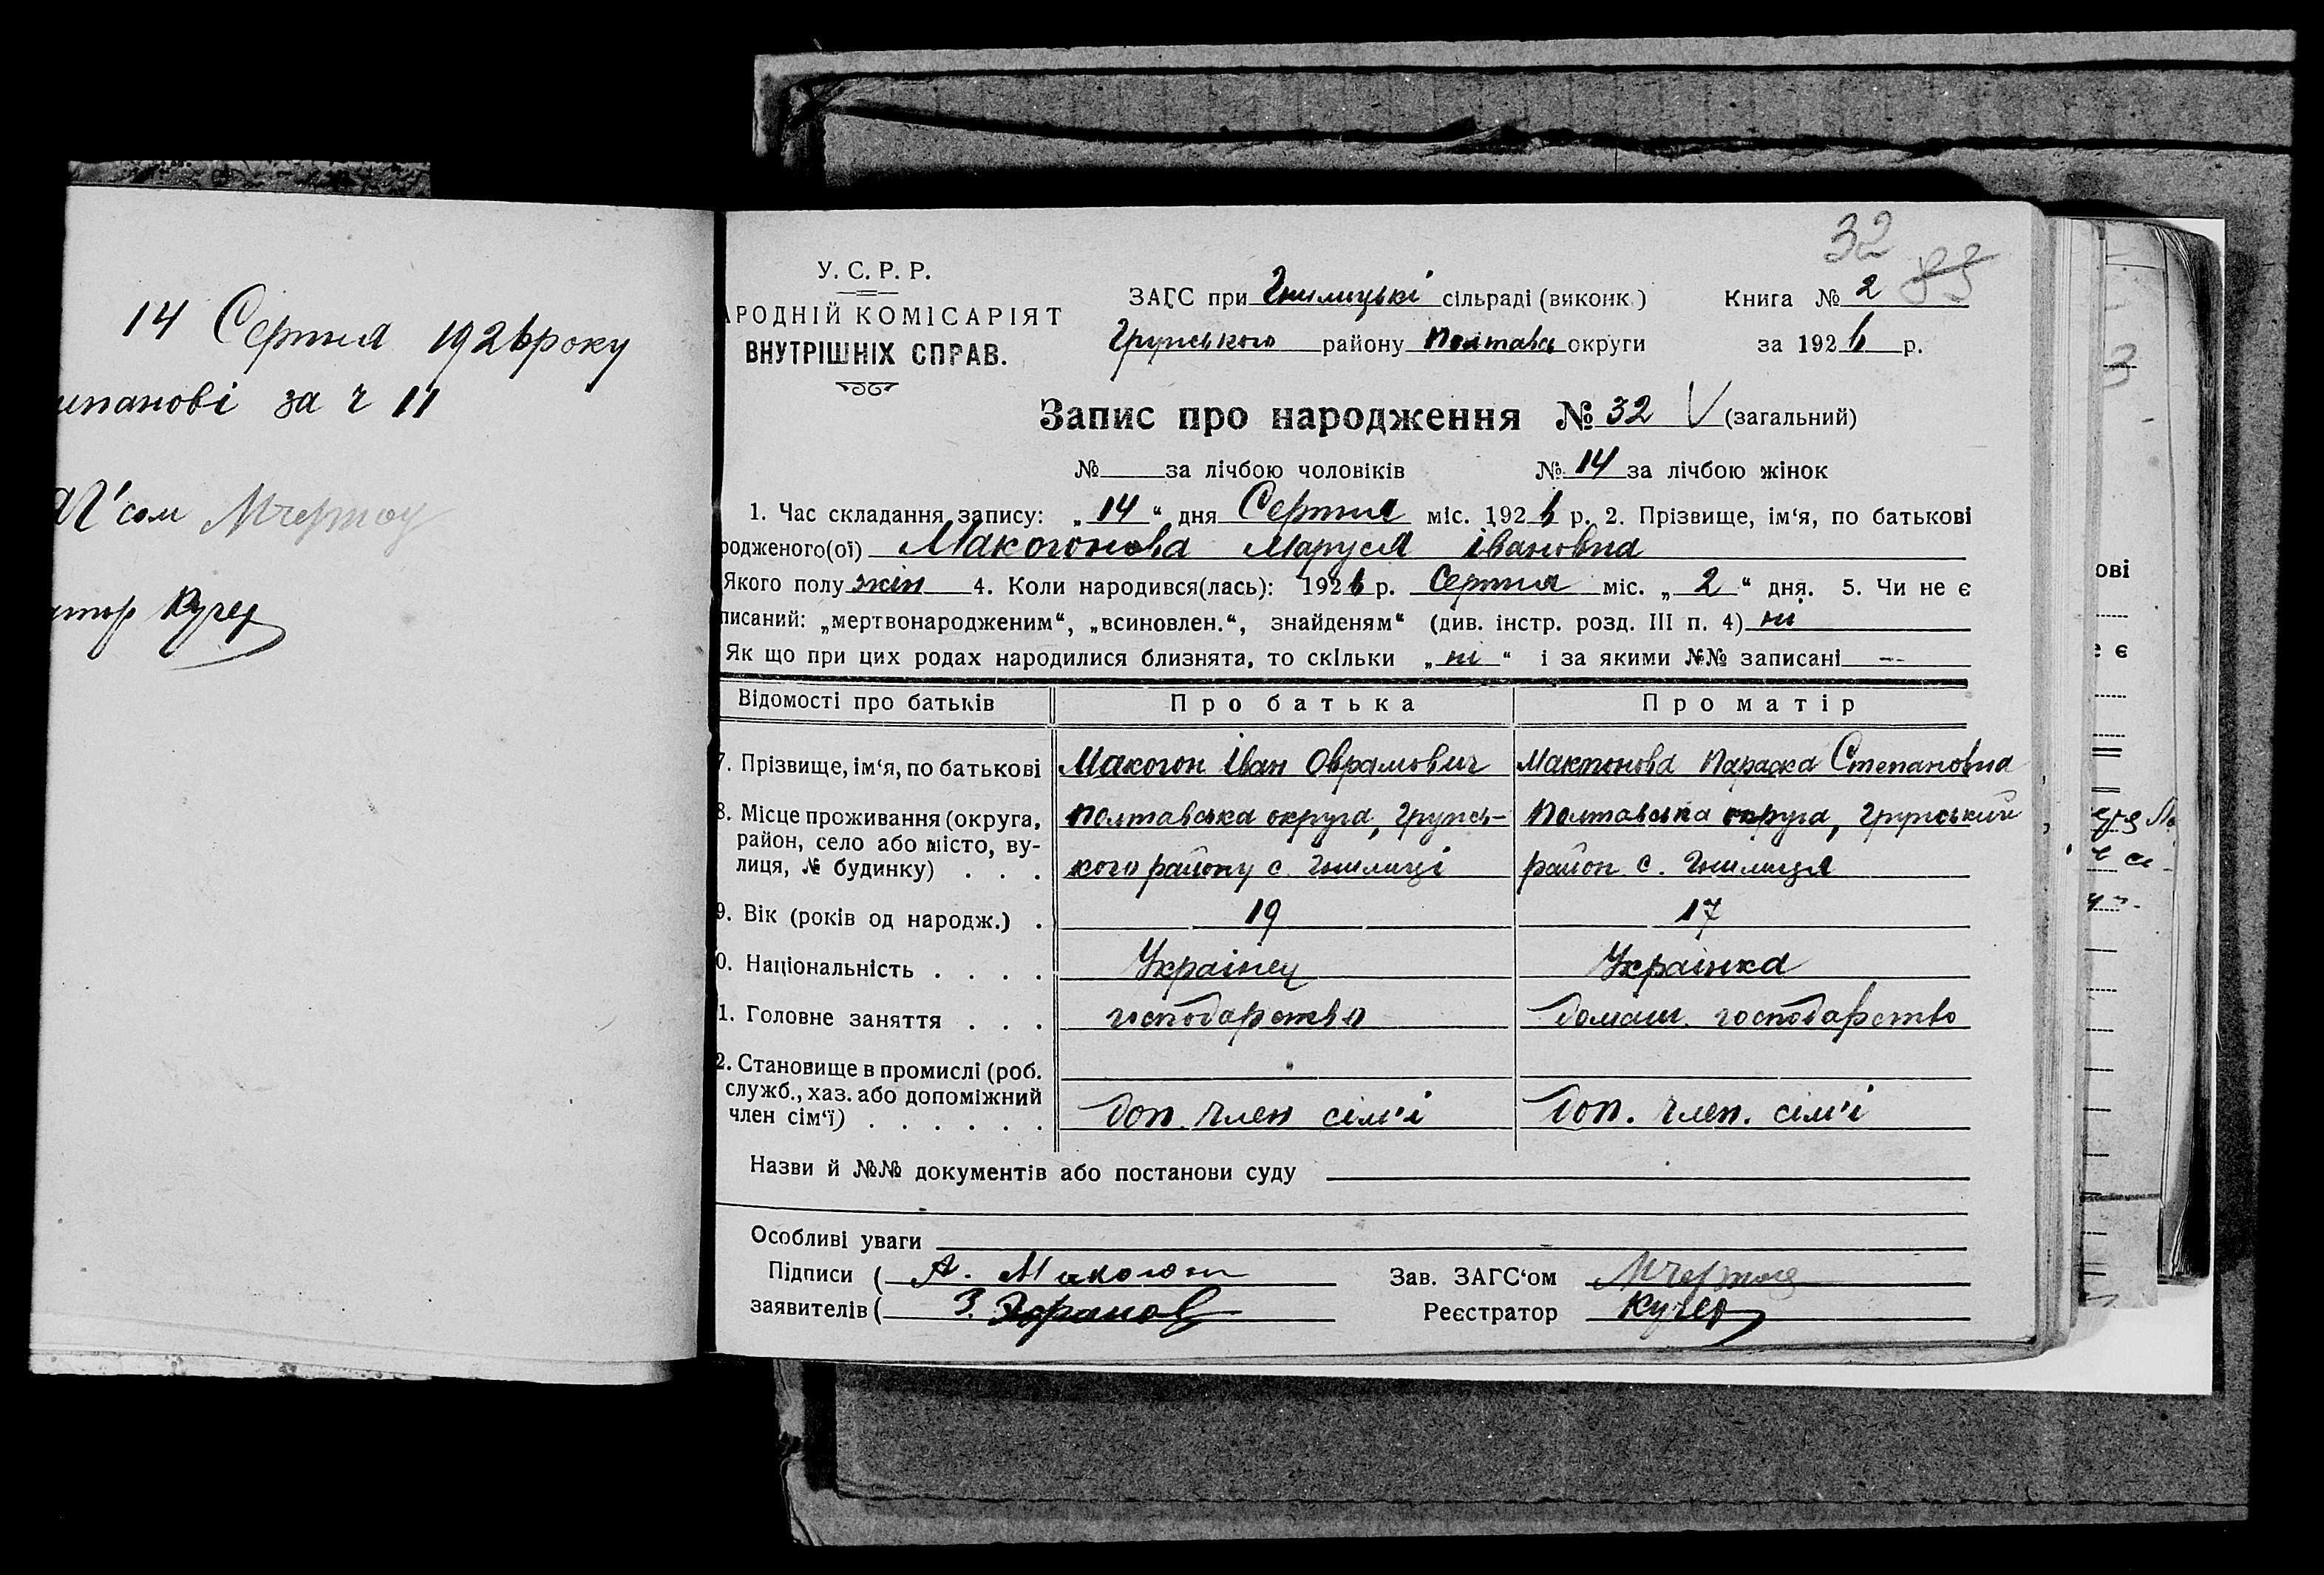 14 Серпня 1926 року
за ч 11
У. С. Р. Р.
АРОДНІЙ КОМІСАРІЯТ
ВНУТРІШНІХ СПРАВ.
32
83
ЗАГС при Гнилицькі сільраді (виконк.) Книга № 2
Грунського району Полтавс округи за 1926 р.
Запис про народження № 32 V (загальний)
№ за лічбою чоловіків № 14 за лічбою жінок
1. Час складання запису: „14“ дня Серпня міс. 1926 р. 2. Прізвище, ім‘я, по батькові
родженого(ої) Макогонова Маруся Івановна
Якого полу жін 4. Коли народився(лась): 1926 р. Серпня міс. „2“ дня. 5. Чи не є
писаний: „мертвонародженим“, „всиновлен.“, знайденям“ (див. інстр. розд. III п. 4) ні
Як що при цих родах народилися близнята, то скільки „ні“ і за якими №№ записані --
Відомості про батьків Про батька Про матір
7. Прізвище, ім‘я, по батькові Макогон Іван Оврамович Макогонова Параска Степановна
8. Місце проживання (округа, Полтавська округа, Грунсь- Полтавська округа, Грунський
район, село або місто, ву-
лиця, № будинку) . . . кого району с. Гнилиці район с. Гнилиця
9. Вік (років од народж.) . 19 17
0. Національність . . . . Українец Українка
1. Головне заняття . . . господарство домаш. господарство
2. Становище в промислі (роб.
служб., хаз. або допоміжний
член сім‘ї) . . . . . . доп. член сім'і доп. член. сім'і
Назви й №№ документів або постанови суду
Особливі уваги
Підписи ( А. Макогон Зав. ЗАГС‘ом
заявителів ( З. Реєстратор Кучер
ові
є